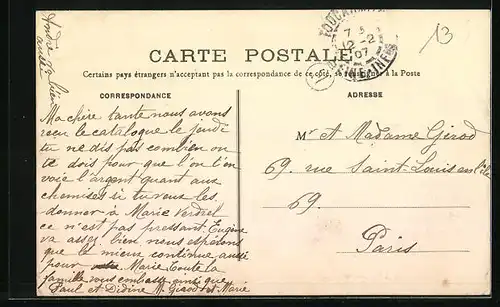 André va bien
aussi
13
7
12-2
07
CARTE POSTALE
Certains pays étrangers n'acceptant pas la correspondance de ce côté, se renseigner à la Poste
CORRESPONDANCE
Ma chère tante nous avons
reçu le catalogue le jeudi
tu ne dis pas combien on
te dois pour que l'on t'en
voie l'argent quant aux
chemises si tu veux les
donner a Marie Verdret
ce n'est pas pressant. Eugène
va assez bien nous espérons
que le mieux continue aussi
pour Marie toute la
famille vous embrasse ainsi que
Paul et Didine M. Girod et Marie
ADRESSE
Mr et Madame Girod
69. rue Saint-Louis en l'ile
69.
Paris